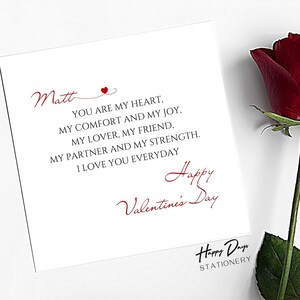 Matt
YOU ARE MY HEART,
MY COMFORT AND MY JOY,
MY LOVER, MY FRIEND,
MY PARTNER AND MY STRENGTH.
I LOVE YOU EVERYDAY
Happy
Valentine's Day
Happy Days
STATIONERY